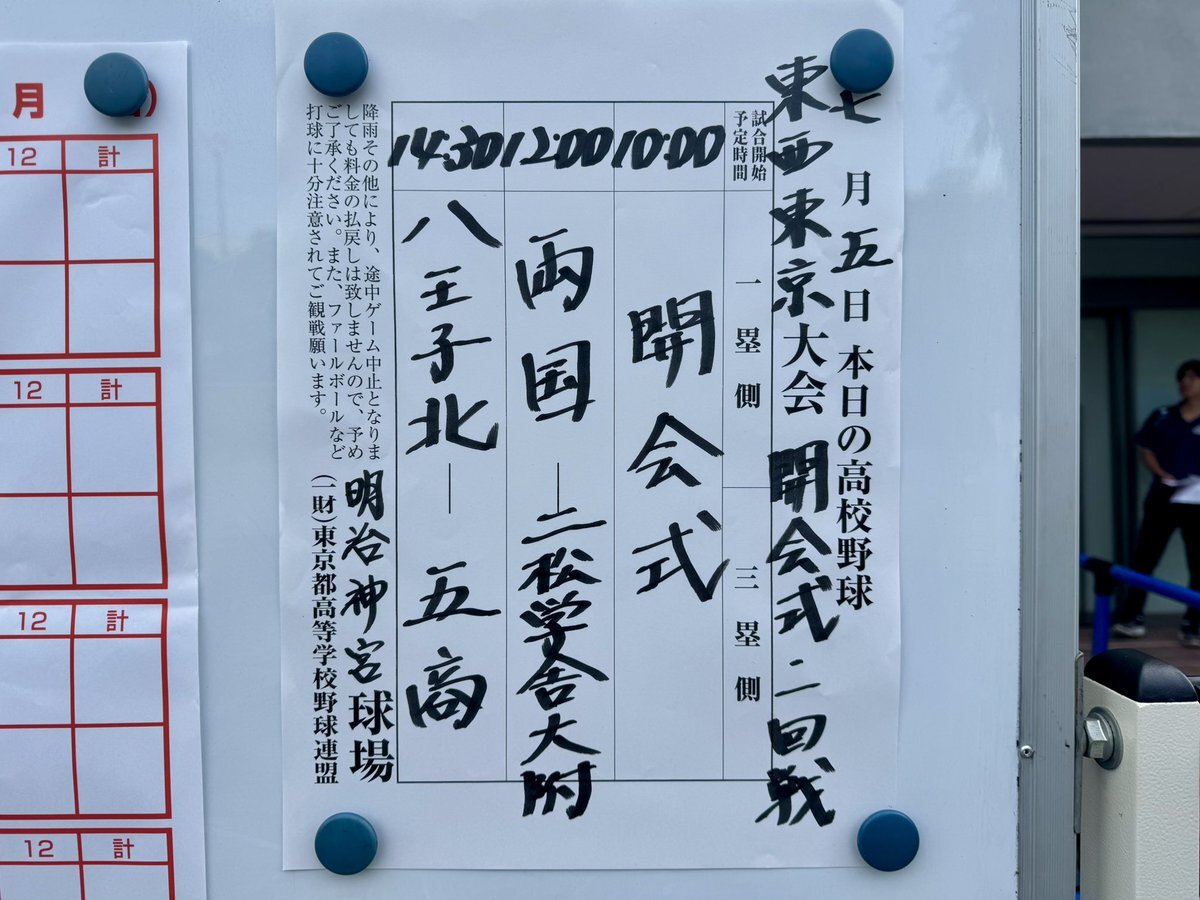 七月五日 本日の高校野球
東西東京大会 開会式 二回戦
試合開始
予定時間
一塁側
三塁側
10:00
開会式
12:00
両国 ― 二松学舎大附
14:30
八王子北 ― 五商
降雨その他により、途中ゲーム中止となりま
しても料金の払戻しは致しませんので、予め
ご了承ください。また、ファールボールなど
打球に十分注意されてご観戦願います。
明治神宮球場
(一財)東京都高等学校野球連盟
月
)
12 計
12 計
12 計
12 計